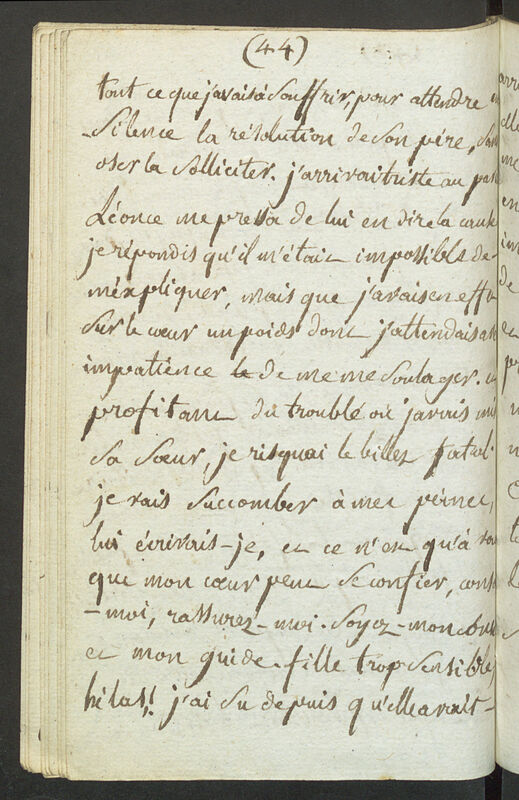 (44)
tout ce que j'avais à Souffrir, pour attendre en
Silence la résolution de Son père, Sans
oser la Solliciter. j'arrivai triste au par
Léonce me pressa de lui en dire la cause
je répondis qu'il m'était impossible de
m'éxpliquer, mais que j'avais en effet
Sur le cœur un poids dont j'attendais avec
impatience de me me Soulager. en
profitant du trouble où j'avais mis
Sa Sœur, je risquai le billet fatal.
je vais Succomber à mes peines,
lui écrivais-je, et ce n'est qu'à vous
que mon cœur peut Se confier, cons
-moi, rassurez-moi. Soyez-mon
et mon guide. fille trop Sensible,
hélas! j'ai Su depuis qu'elle avait-